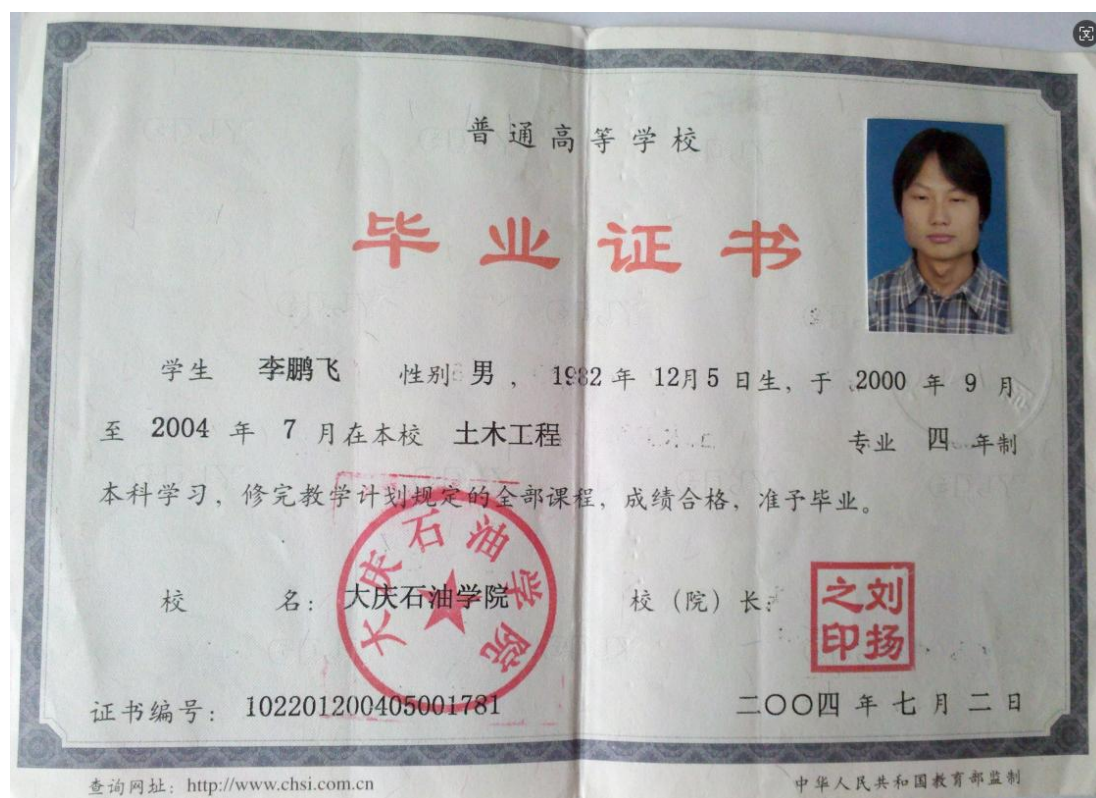 普通高等学校
毕业证书
学生 李鹏飞 性别 男，1982年12月5日生，于2000年9月
至2004年7月在本校 土木工程 专业 四年制
本科学习，修完教学计划规定的全部课程，成绩合格，准予毕业。
校 名：大庆石油学院 校（院）长：
大庆石油学院
刘扬之印
证书编号：102201200405001781 二〇〇四年七月二日
查询网址：http://www.chsi.com.cn 中华人民共和国教育部监制